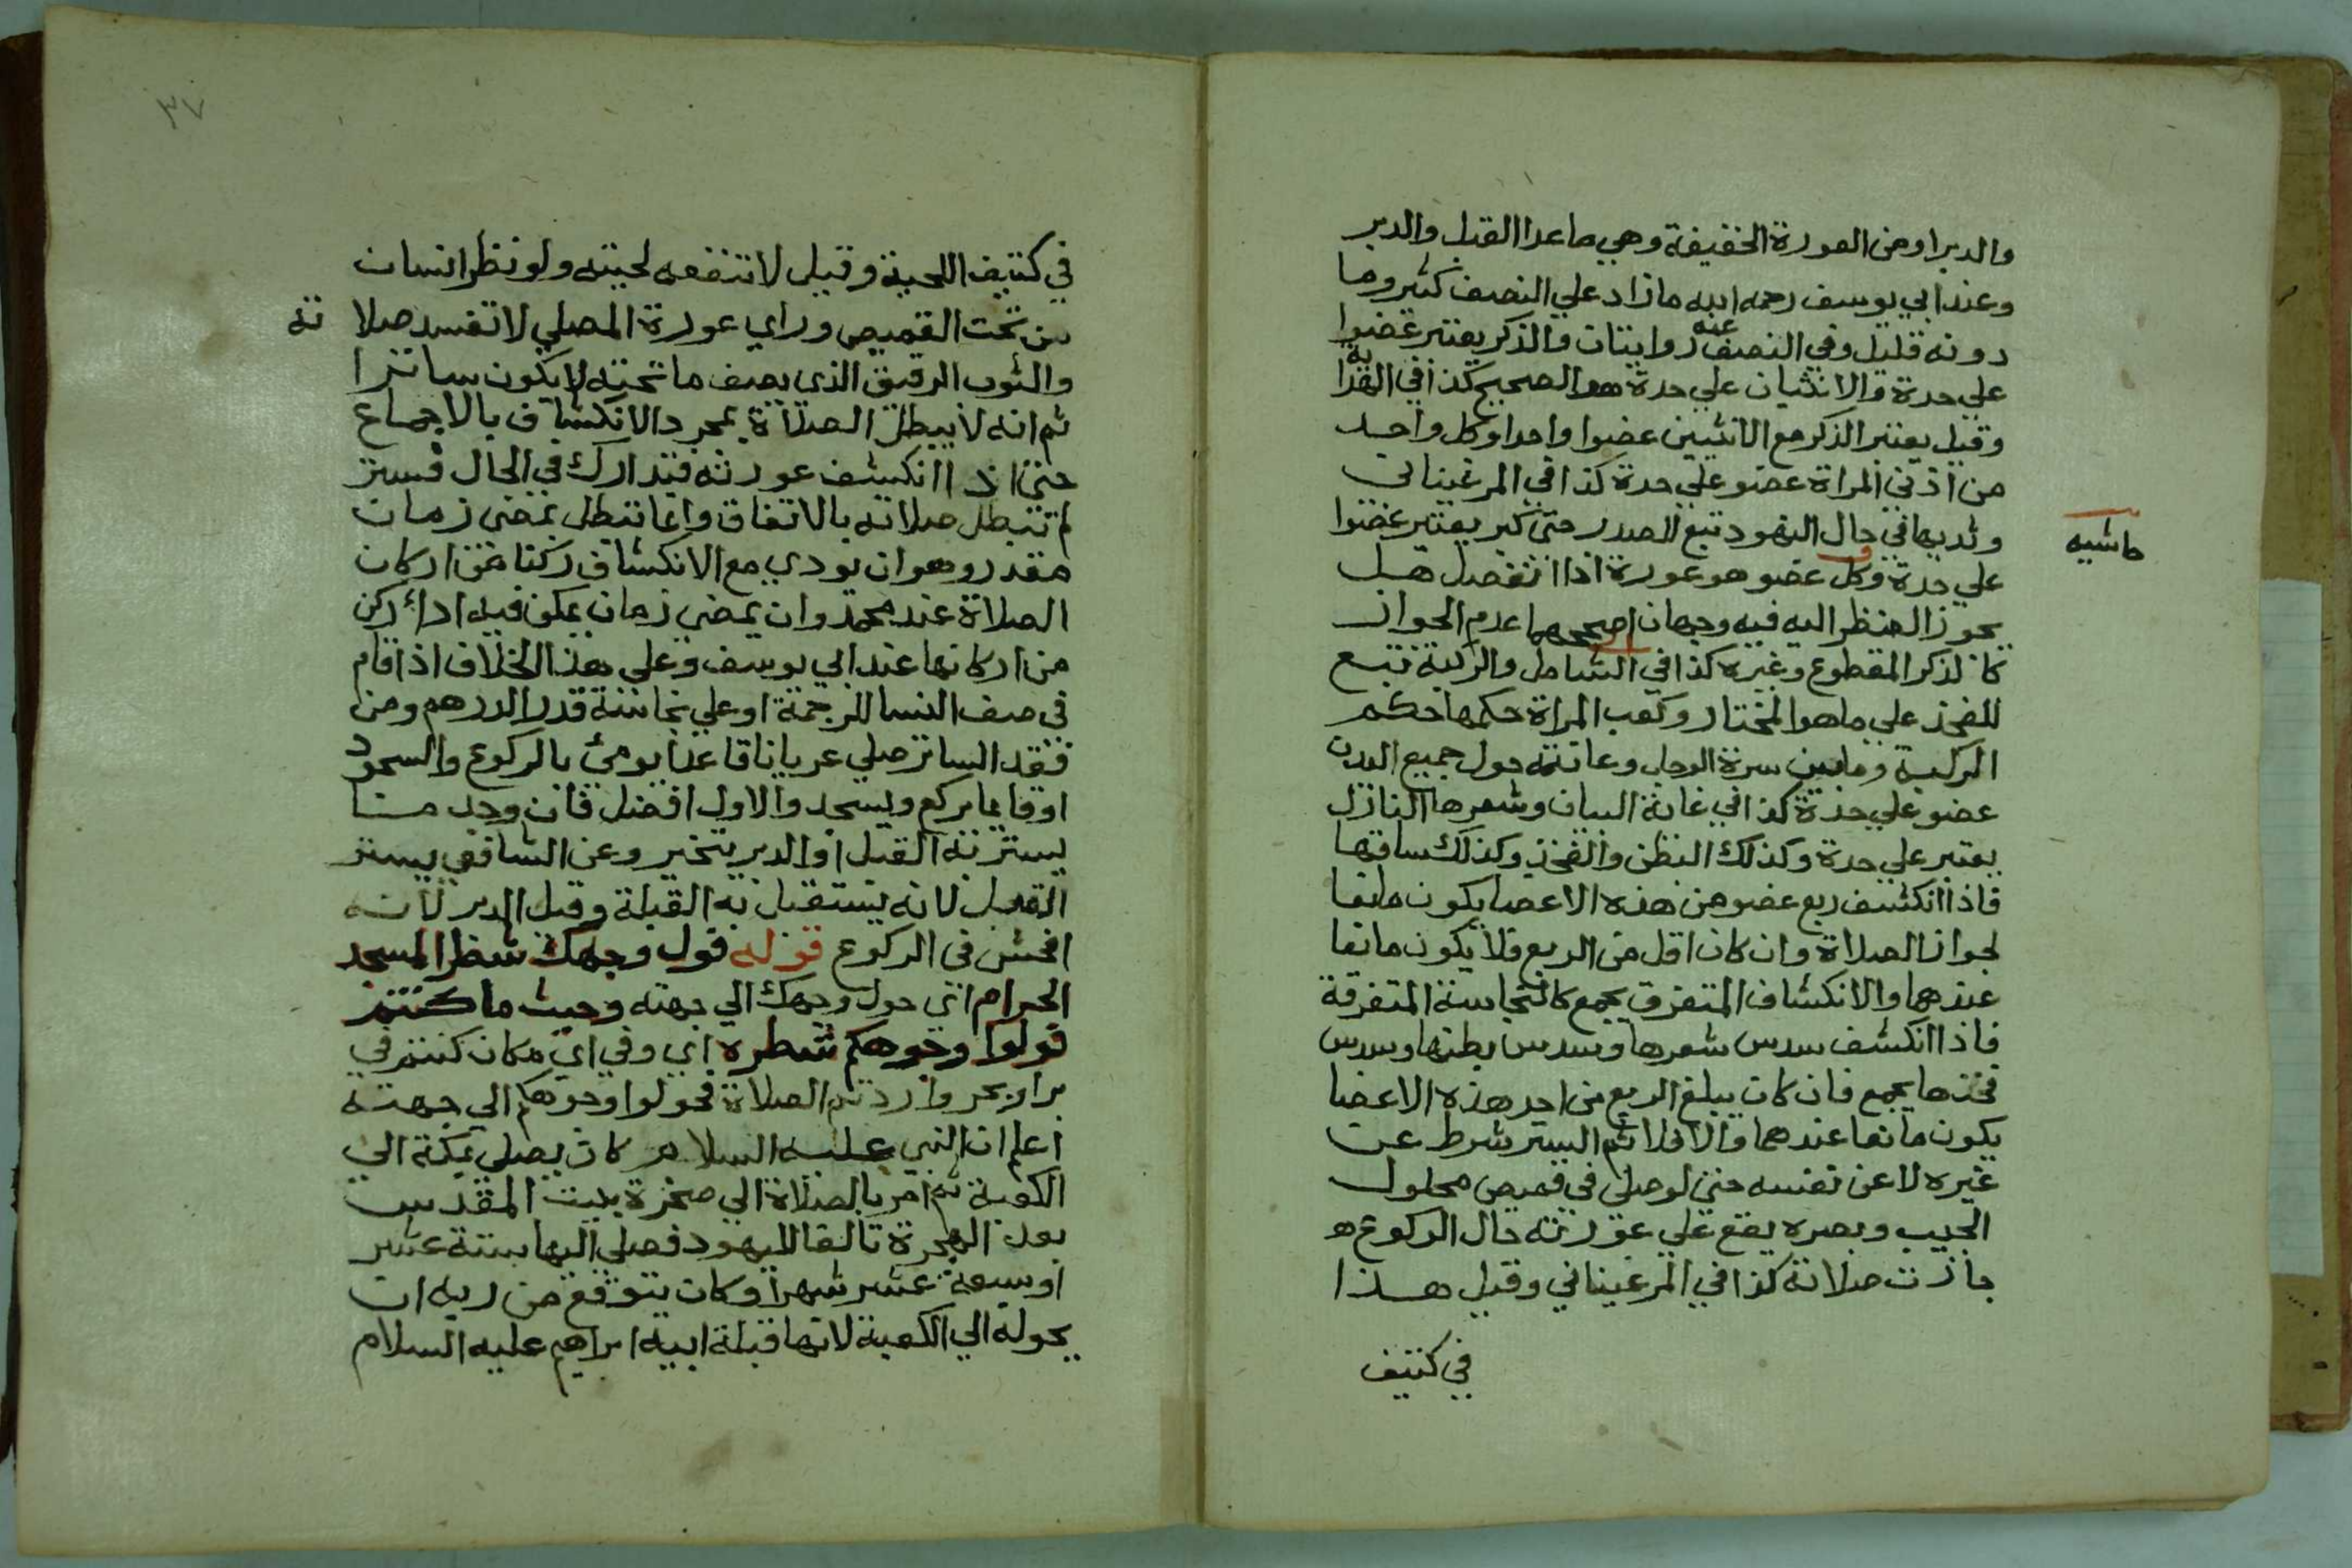 والدبر او من العورة الخفيفة وهي ما عدا القبل والدبر
وعند ابي يوسف رحمه الله ما زاد علي النصف كثير وما
دونه قليل وفي النصف عنه روايتان والذكر يعتبر عضوا
علي حدة والانثيان علي حدة هو الصحيح كذا في الهداية
وقيل يعتبر الذكر مع الانثيين عضوا واحدا وكل واحد
من اذني المراة عضو علي حدة كذا في المرغيناني
وثديها في حال النهود تبع للصدر حتى كبر يعتبر عضوا
حاشيه
علي حدة وكل عضو هو عورة اذا انفصل هل
يجوز النظر اليه فيه وجهان اصحهما عدم الجواز
كالذكر المقطوع وغيره كذا في الشامل والركبة تبع
للفخذ علي ما هو المختار وكعب المراة حكمها حكم
الركبة وما بين سرة الرجل وعانته حول جميع البدن
عضو علي حدة كذا في غاية البيان وشعرها النازل
يعتبر علي حدة وكذلك البطن والفخذ وكذلك ساقها
فاذا انكشف ربع عضو من هذه الاعضا يكون مانعا
لجواز الصلاة وان كان اقل من الربع فلا يكون مانعا
عندهما والانكشاف المتفرق يجمع كالنجاسة المتفرقة
فاذا انكشف سدس شعرها وسدس بطنها وسدس
فخذها يجمع فان كان يبلغ الربع من احد هذه الاعضا
يكون مانعا عندهما والا فلا ثم الستر شرط عن
غيره لا عن نفسه حتى لو صلى في قميص محلول
الجيب وبصره يقع علي عورته حال الركوع ه
جازت صلاته كذا في المرغيناني وقيل هذا
في كثيف
٣٧
في كثيف اللحية وقيل لا تنفعه لحيته ولو نظر انسان
من تحت القميص وراي عورة المصلي لا تفسد صلاته
والثوب الرقيق الذي يصف ما تحته لا يكون ساترا
ثم انه لا يبطل الصلاة بمجرد الانكشاف بالاجماع
حتى اذا انكشف عورته فتدارك في الحال فستر
لم تبطل صلاته بالاتفاق وانما تبطل بمضى زمان
مقدر وهو ان يودي مع الانكشاف ركنا من اركان
الصلاة عند محمد وان يمضى زمان يمكن فيه اداء ركن
من اركانها عند ابي يوسف وعلي هذا الخلاف اذا قام
في صف النسا للزحمة او علي نجاسة قدر الدرهم ومن
فقد الساتر صلي عريانا قاعدا يومئ بالركوع والسجود
او قايما يركع ويسجد والاول افضل فان وجد ما
يستر به القبل او الدبر يتخير وعن الشافعي يستر
القبل لانه يستقبل به القبلة وقيل الدبر لانه
افحش في الركوع قوله فول وجهك شطر المسجد
الحرام اى حول وجهك الي جهته وحيث ما كنتم
فولوا وجوهكم شطره اي وفي اي مكان كنتم في
بر او بحر واردتم الصلاة فحولوا وجوهكم الي جهته
اعلم ان النبي عليه السلام كان يصلي بمكة الى
الكعبة ثم امر بالصلاة الي صخرة بيت المقدس
بعد الهجرة تالفا لليهود فصلي اليها ستة عشر
او سبعة عشر شهرا وكان يتوقع من ربه ان
يحوله الي الكعبة لانها قبلة ابيه ابراهيم عليه السلام